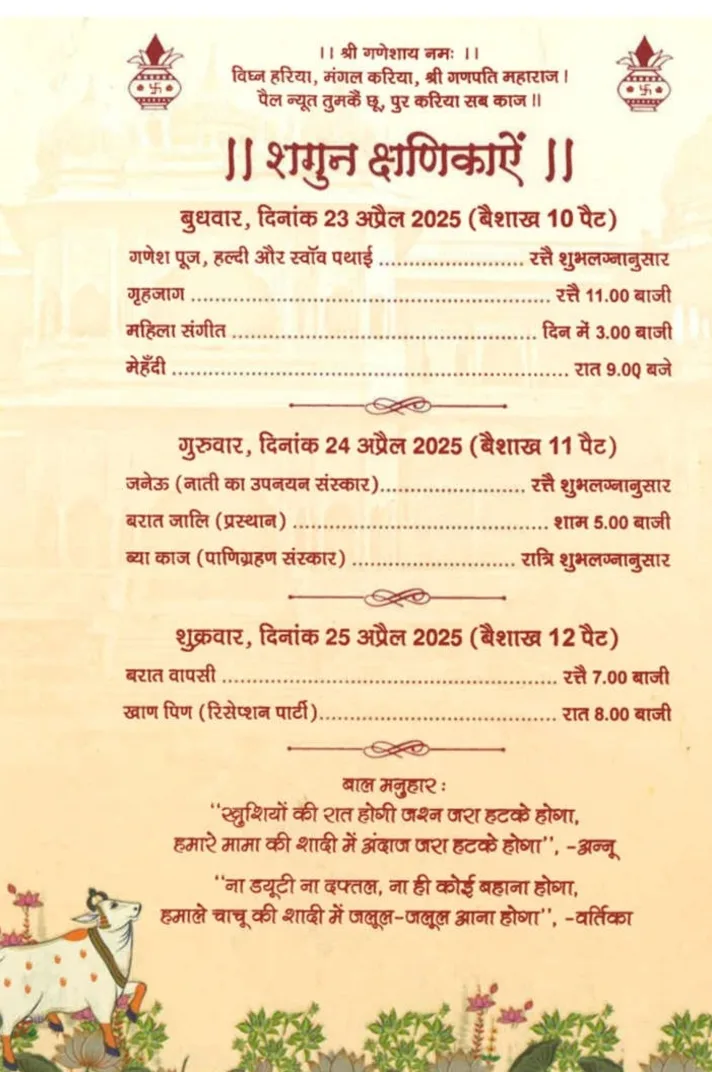 ।। श्री गणेशाय नमः ।।
विघ्न हरिया, मंगल करिया, श्री गणपति महाराज।
पैल न्यूत तुमकैं छू, पुर करिया सब काज।।
।। शगुन क्षणिकाऐं ।।
बुधवार, दिनांक 23 अप्रैल 2025 (बैशाख 10 पैट)
गणेश पूज, हल्दी और स्वॉव पथाई ........................ रत्तै शुभलग्नानुसार
गृहजाग ............................................................ रत्तै 11.00 बाजी
महिला संगीत .................................................... दिन में 3.00 बाजी
मेहँदी .................................................................. रात 9.00 बजे
गुरुवार, दिनांक 24 अप्रैल 2025 (बैशाख 11 पैट)
जनेऊ (नाती का उपनयन संस्कार)........................ रत्तै शुभलग्नानुसार
बरात जालि (प्रस्थान) .......................................... शाम 5.00 बाजी
ब्या काज (पाणिग्रहण संस्कार) ........................... रात्रि शुभलग्नानुसार
शुक्रवार, दिनांक 25 अप्रैल 2025 (बैशाख 12 पैट)
बरात वापसी ....................................................... रत्तै 7.00 बाजी
खाण पिण (रिसेप्शन पार्टी)....................................... रात 8.00 बाजी
बाल मनुहार :
‘‘खुशियों की रात होगी जश्न जरा हटके होगा,
हमारे मामा की शादी में अंदाज जरा हटके होगा’’, -अन्नू
‘‘ना डयूटी ना दफ्तल, ना ही कोई बहाना होगा,
हमाले चाचू की शादी में जलूल-जलूल आना होगा’’, -वर्तिका